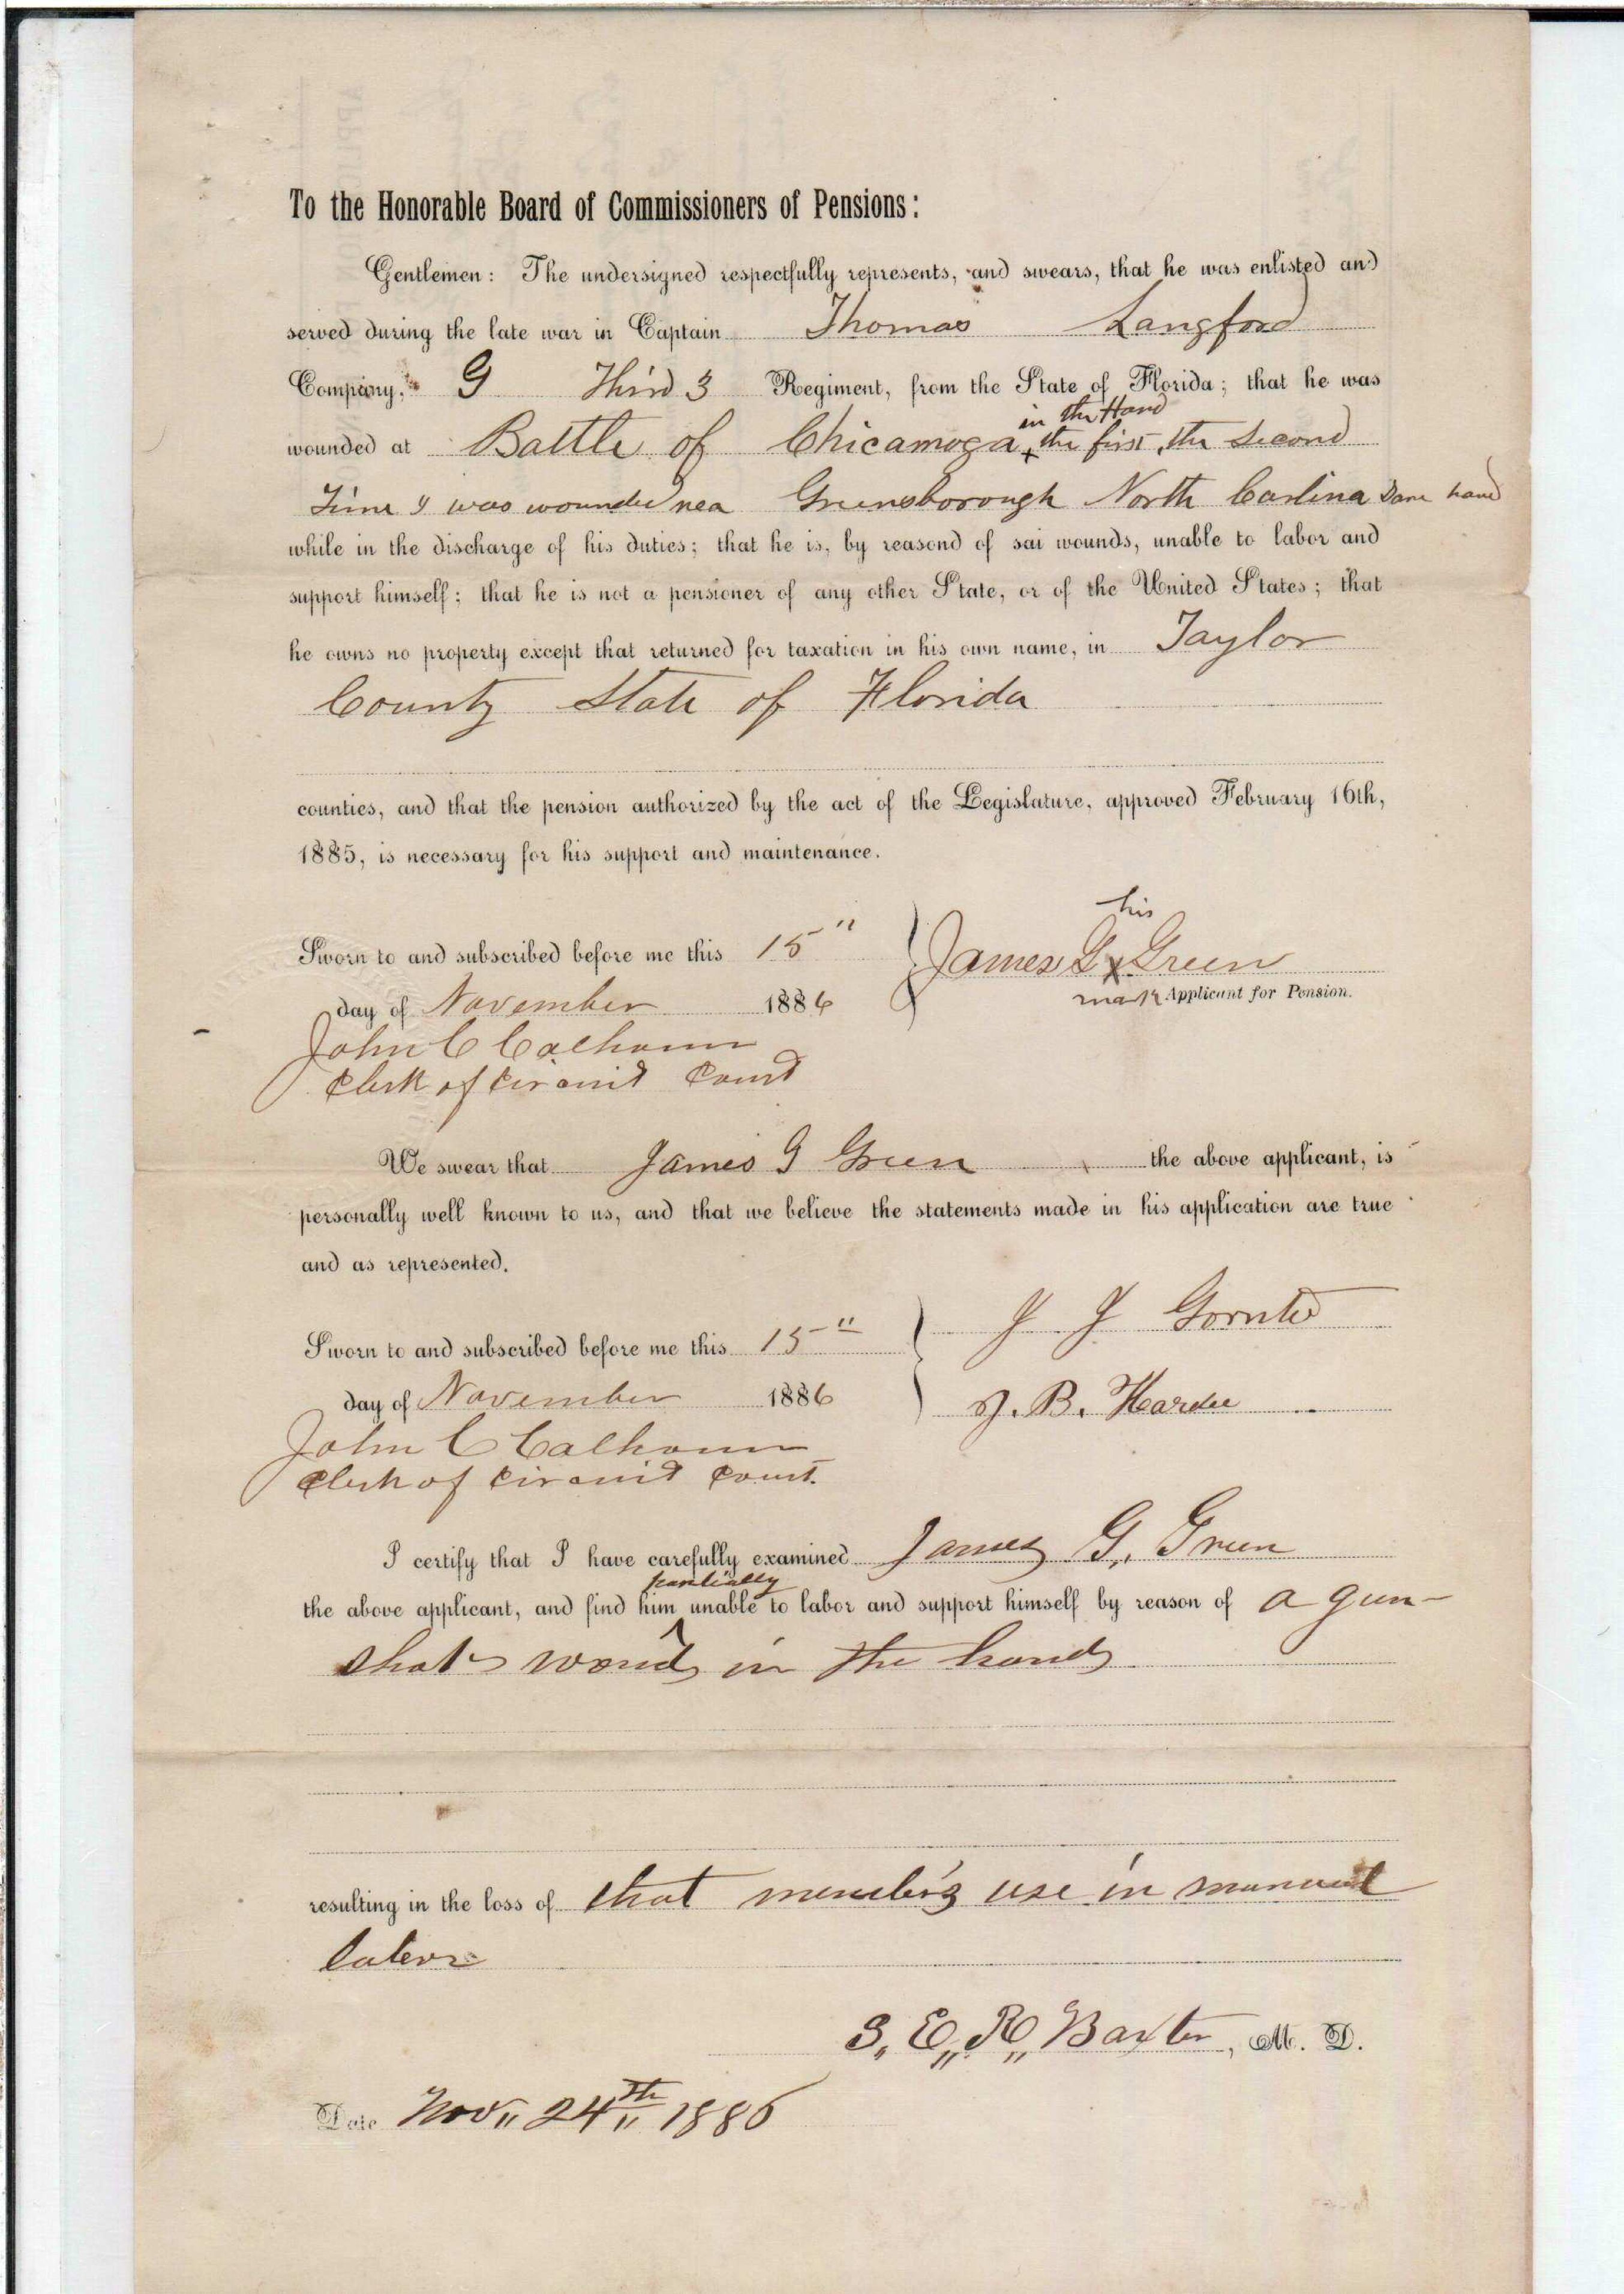 To the Honorable Board of Commissioners of Pensions:
Gentlemen: The undersigned respectfully represents, and swears, that he was enlisted and
served during the late war in Captain Thomas Langford
Company, G Third 3 Regiment, from the State of Florida; that he was
in the Hand
wounded at Battle of Chicamoga x the first, the Second
Time I was wounded nea Greensborough North Carlina Same hand
while in the discharge of his duties; that he is, by reasond of sai wounds, unable to labor and
support himself; that he is not a pensioner of any other State, or of the United States; that
he owns no property except that returned for taxation in his own name, in Taylor
County State of Florida
counties, and that the pension authorized by the act of the Legislature, approved February 16th,
1885, is necessary for his support and maintenance.
his
Sworn to and subscribed before me this 15" James G x Green
day of November 1886 mark Applicant for Pension.
John C Calhoun
Clerk of Circuit Court
We swear that James G Green the above applicant, is
personally well known to us, and that we believe the statements made in his application are true
and as represented.
Sworn to and subscribed before me this 15" J J Gornto
day of November 1886 J. B. Hardee
John C Calhoun
Clerk of Circuit Court.
I certify that I have carefully examined James G. Green
partially
the above applicant, and find him unable to labor and support himself by reason of a gun-
shot wound in the hand
resulting in the loss of that member's use in manual
labor
S. E. R. Baxter, M. D.
Date Nov 24th 1886